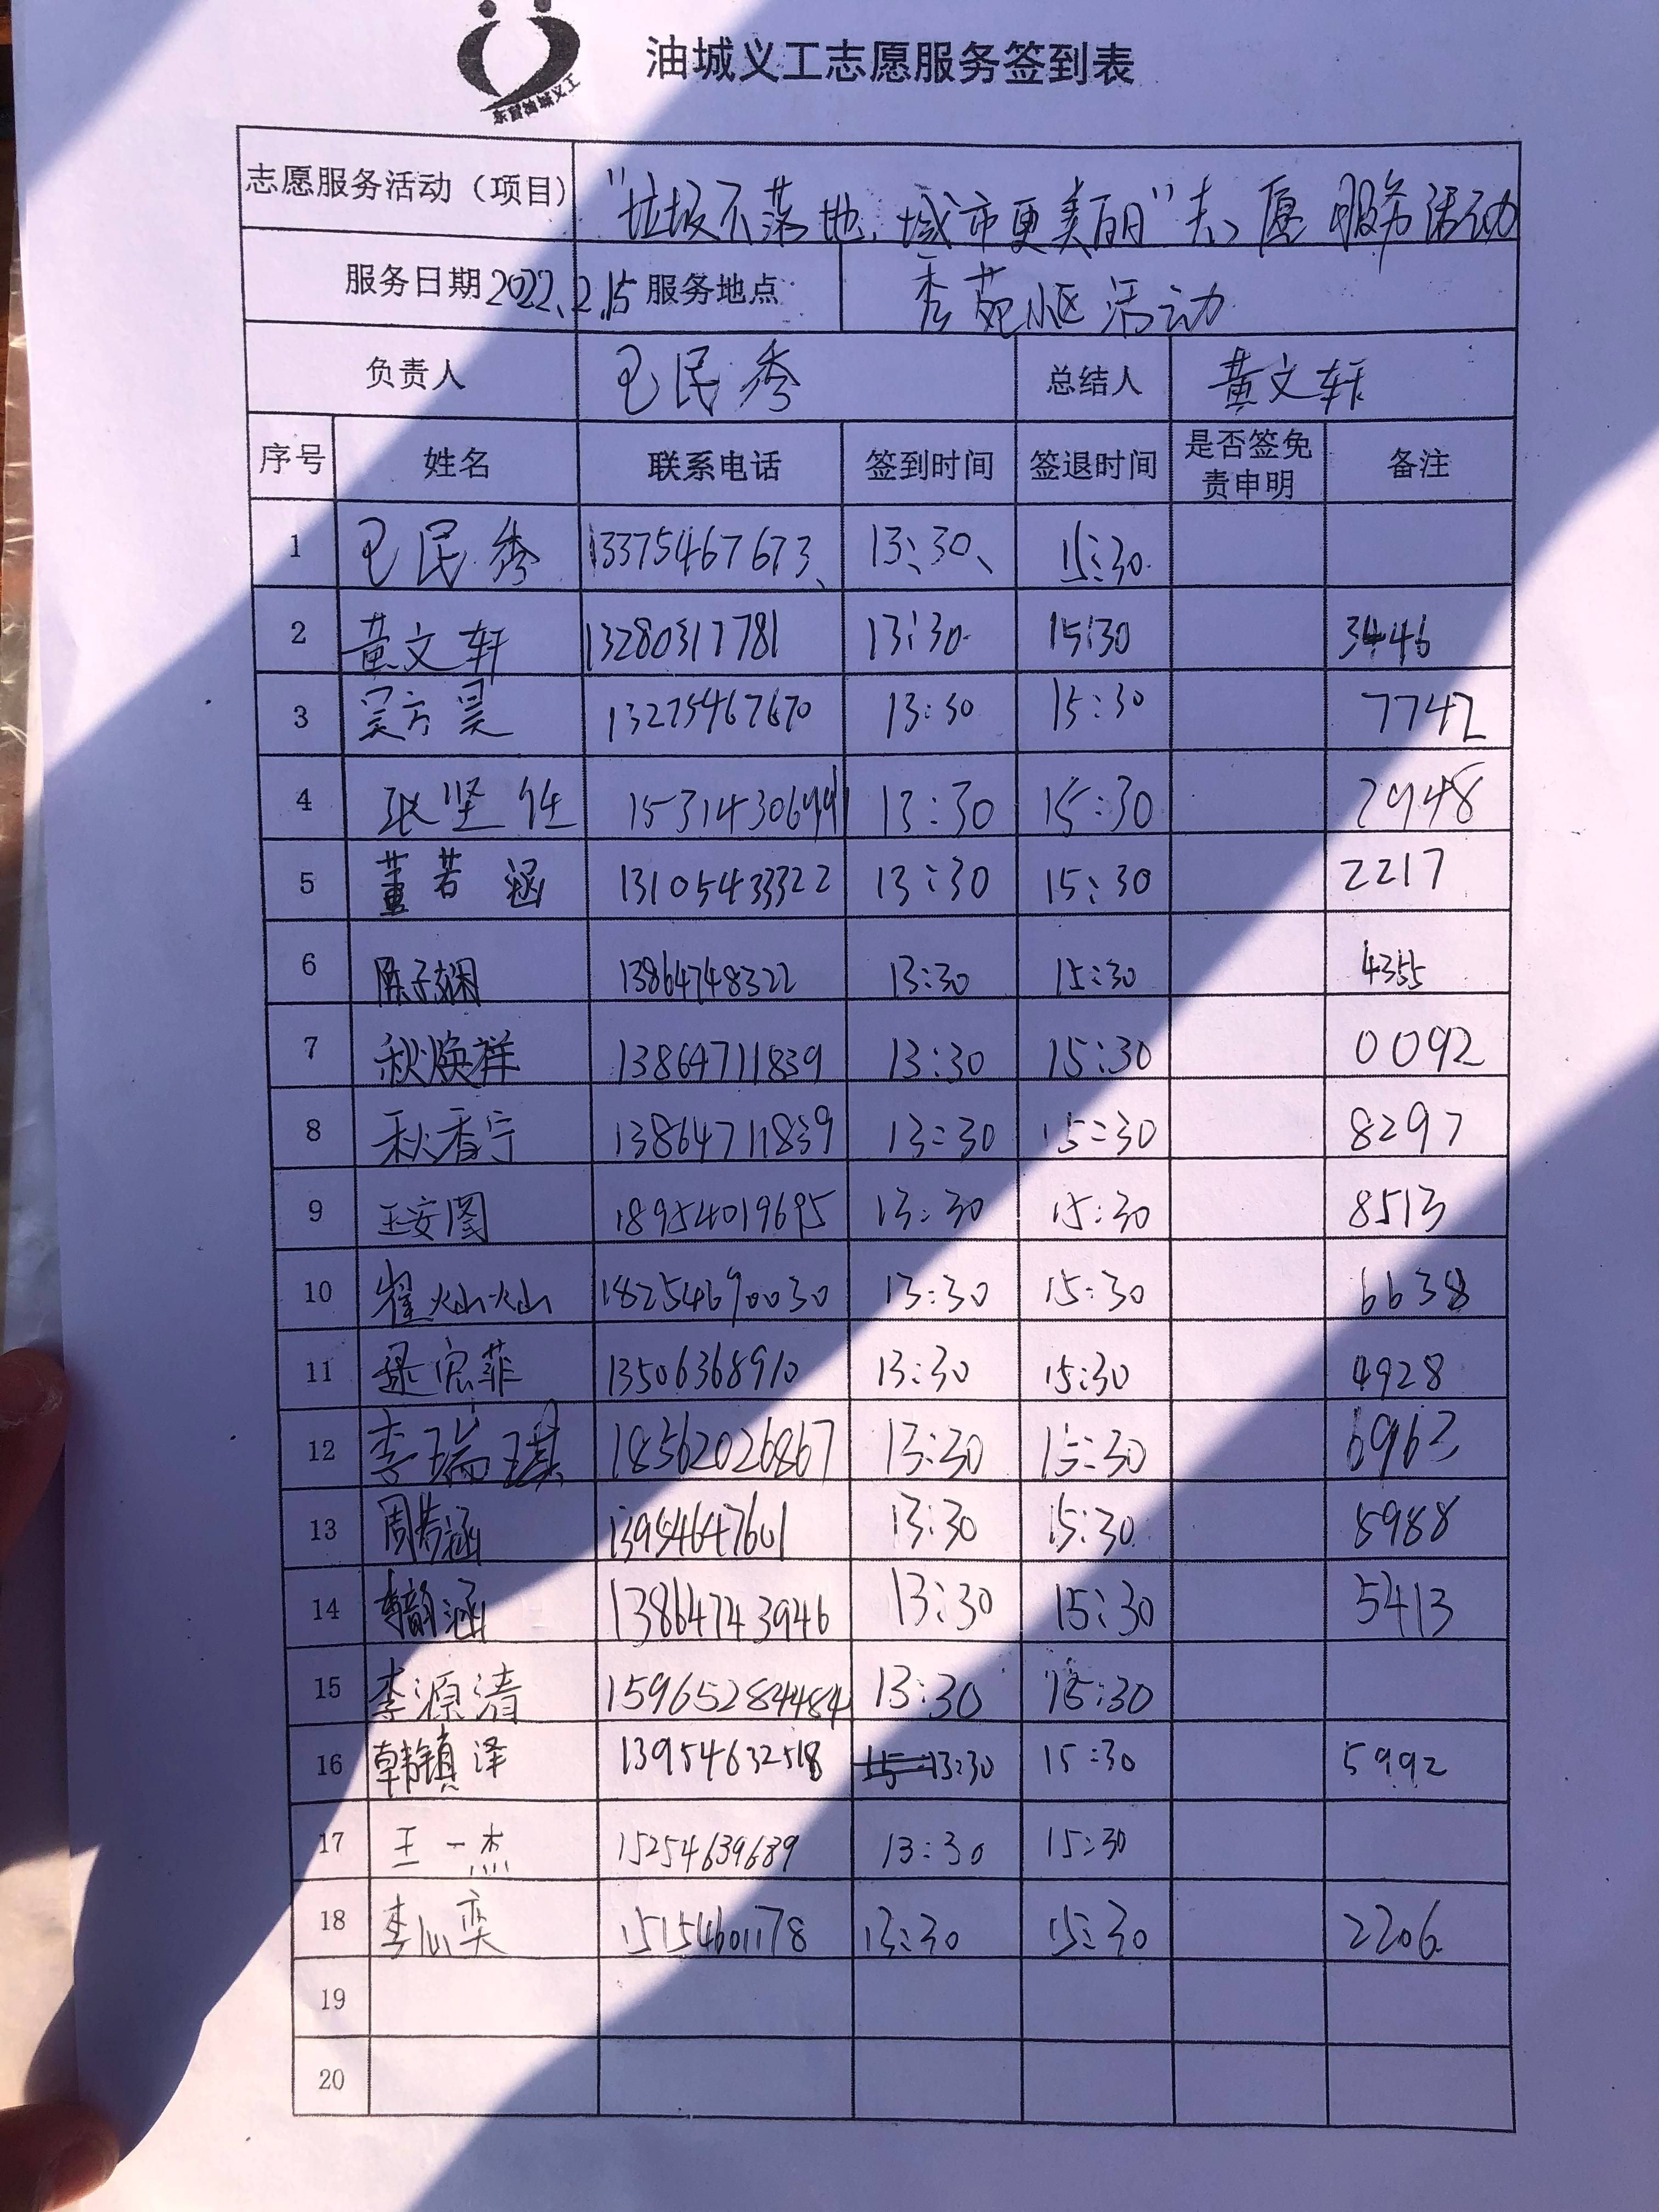 东营油城义工
油城义工志愿服务签到表
志愿服务活动（项目） "垃圾不落地，城市更美丽"志愿服务活动
服务日期 2022.2.15 服务地点 秀苑小区活动
负责人 民秀 总结人 黄文轩
序号 姓名 联系电话 签到时间 签退时间 是否签免责申明 备注
1 民秀 13375467673 13:30 15:30
2 黄文轩 13280317781 13:30 15:30 3446
3 吴方昊 13275467670 13:30 15:30 7742
4 张坚任 13:30 15:30 2948
5 董若涵 13105433322 13:30 15:30 2217
6 陈子娴 13864748322 13:30 15:30 4355
7 秋焕祥 13864711839 13:30 15:30 0092
8 秋香宁 13864711839 13:30 15:30 8297
9 王安阁 18954019695 13:30 15:30 8513
10 崔灿灿 18254690030 13:30 15:30 6638
11 菲 13506368910 13:30 15:30 4928
12 李瑞琪 18562026867 13:30 15:30 6963
13 周若涵 13954647601 13:30 15:30 5988
14 李韵涵 13864743946 13:30 15:30 5413
15 李源清 15965284484 13:30 15:30
16 韩镇泽 13954632518 13:30 15:30 5992
17 王一杰 15254639689 13:30 15:30
18 李心奕 15154601178 13:30 15:30 2206
19
20